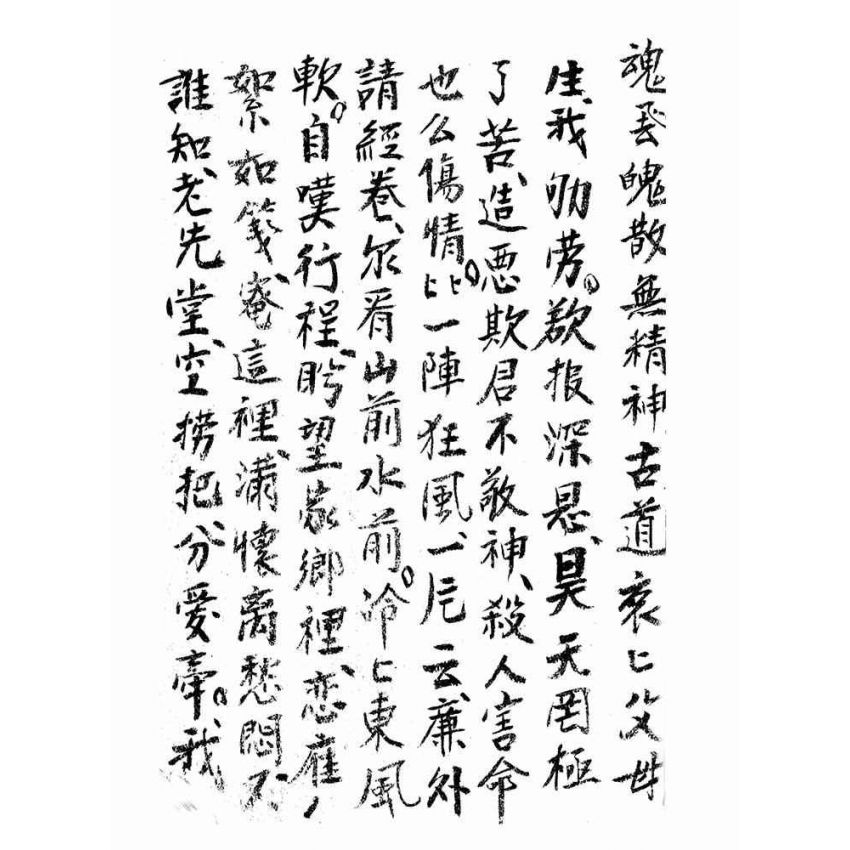 魂飛魄散無精神古道哀〻父母
生、我劬劳。欲报深恩、昊天罔極
了苦、造悪欺君不敬神、殺人害命
也么傷情。〻一陣狂風、一片云、簾外
請經卷、尔看山前水前。冷〻東風
軟。自嘆行程、盻望家鄉裡、恋
絮如箋、庵這裡、满懷离愁悶不
誰知、老先堂、空捞把、分爱牽。我